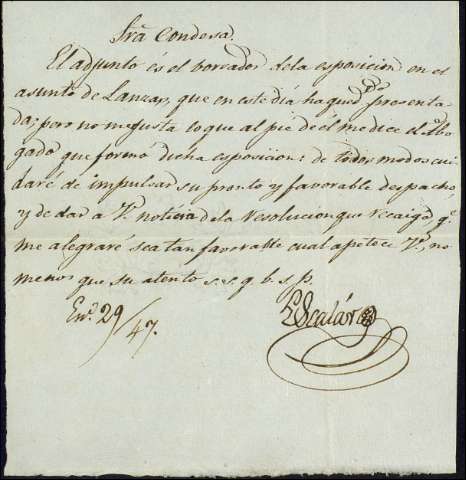 Srã Condesa
El adjunto és el borrador dela esposicion en el
asunto de Lanzas, que en este dia ha quedado presenta-
da; pero no me gusta lo que al pie de él me dice el Abo-
gado que formó dicha esposicion: de todos modos cui-
daré de impulsar su pronto y favorable despacho,
y de dar a V. noticia dela resolucion que recaiga, q.e
me alegraré sea tan favorable cual apetece V., no
menos que su atento s. s. q. b. s. p.
En.o 29/47.